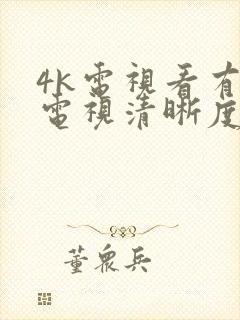 4k電視看有
電視清晰度
董眾兵